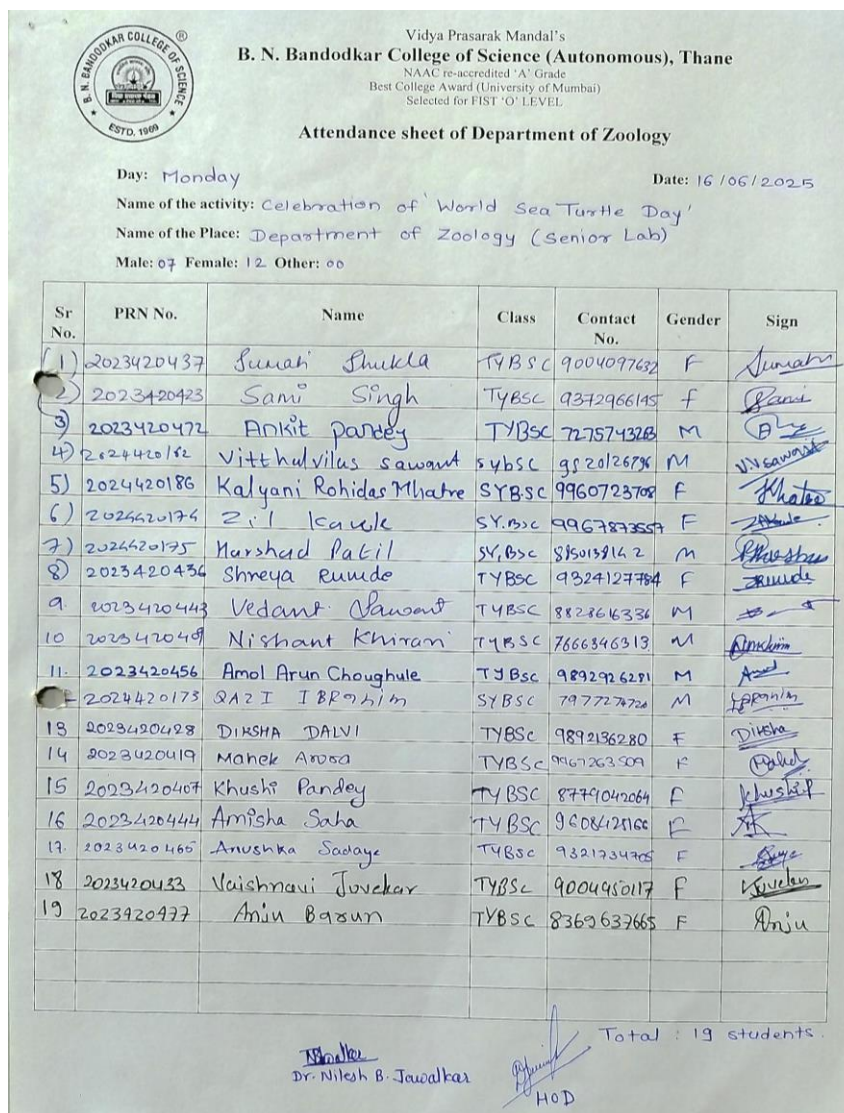 B. N. BANDODKAR COLLEGE OF SCIENCE
ESTD. 1969
®
Vidya Prasarak Mandal's
B. N. Bandodkar College of Science (Autonomous), Thane
NAAC re-accredited 'A' Grade
Best College Award (University of Mumbai)
Selected for FIST 'O' LEVEL
Attendance sheet of Department of Zoology
Day: Monday Date: 16/06/2025
Name of the activity: Celebration of 'World Sea Turtle Day'
Name of the Place: Department of Zoology (Senior Lab)
Male: 07 Female: 12 Other: 00
Sr No. PRN No. Name Class Contact No. Gender Sign
1) 2023420437 Sumati Shukla TYBSC 9004097632 F Sumati
2) 2023420423 Sami Singh TYBSC 9372966145 f Sami
3) 2023420472 Ankit pandey TYBSC 7275743283 M
4) 2024420162 Vitthal vilas sawant sybsc 9520126796 M V.V sawant
5) 2024420186 Kalyani Rohidas Mhatre SYB.SC 9960723708 F
6) 2024420174 Zil Kavle SY.Bsc 9967873557 F
7) 2024420175 Harshad Patil SY,Bsc M
8) 2023420436 Shreya Rumde TYBSC 9324127784 F
9. 2023420443 Vedant Sawant TYBSC 8828616336 M
10 Nishant Khirari TYBSC 7666346313 M
11. 2023420456 Amol Arun Choughule TYBSC 9892926281 M
2024420173 QAZI IBRahim SYBSC M Ibrahim
13 2023420428 DIKSHA DALVI TYBSC 9892136280 F Diksha
14 2023420419 Mahek Arora TYBSC 9967263509 F
15 2023420407 Khushi Pandey TYBSC 8779042064 F Khushi P
16 2023420444 Amisha Saha TYBSC 9608425166 F
17. 2023420465 Anushka Sadaye TYBSC 9321734705 F
18 2023420433 Vaishnavi Juvekar TYBSC 9004950117 F Juvekar
19 2023420477 Anju Barun TYBSC 8369637665 F Anju
Total : 19 students.
Dr. Nilesh B. Jawalkar
HOD